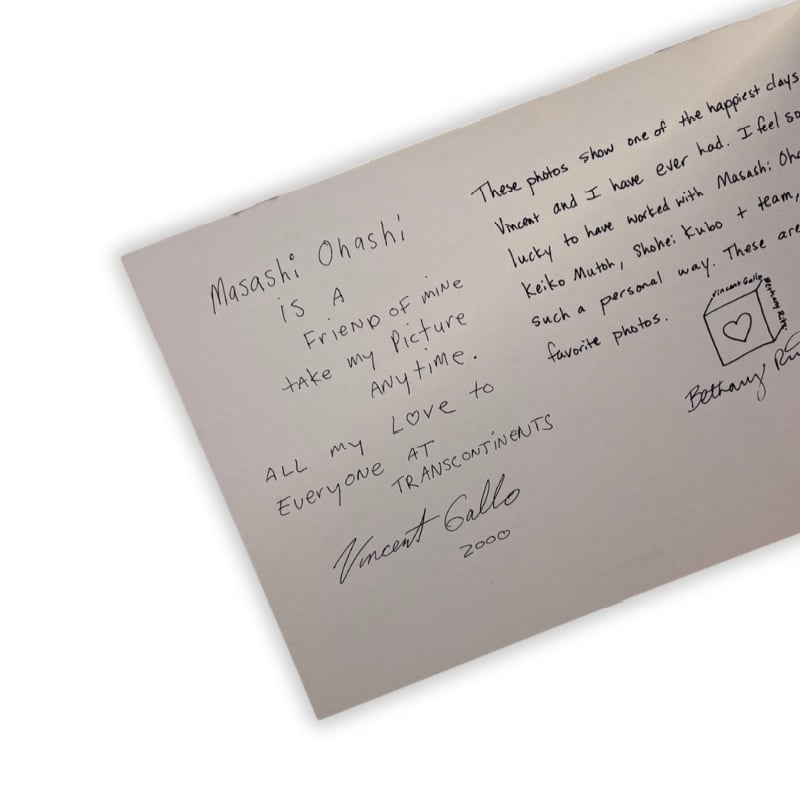 Masashi Ohashi
is A
Friend of mine
take my Picture
Anytime.
All my Love to
Everyone AT
TRANSCONTINENTS
Vincent Gallo
2000
These photos show one of the happiest days
Vincent and I have ever had. I feel so
lucky to have worked with Masashi
Keiko Mutoh, Shohei Kubo + team,
such a personal way. These are
favorite photos.
Vincent Gallo
Bethany
Bethany